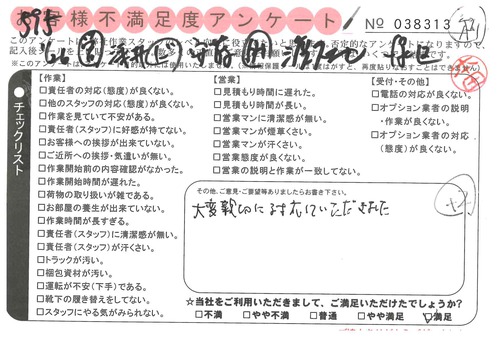 お客様不満足度アンケート
No 038313
【作業】
□責任者の対応(態度)が良くない。
□他のスタッフの対応(態度)が良くない。
□作業を見ていて不安がある。
□責任者(スタッフ)に好感が持てない。
□お客様への挨拶が出来ていない。
□ご近所への挨拶・気遣いが無い。
□作業前の内容確認がなかった。
□作業開始時間が遅れた。
□荷物の取り扱いが雑である。
□お部屋の養生が出来ていない。
□作業時間が長すぎる。
□責任者(スタッフ)に清潔感が無い。
□責任者(スタッフ)が汗くさい。
□トラックが汚い。
□梱包資材が汚い。
□運転が不安(下手)である。
□靴下の履き替えをしてない。
□スタッフにやる気がみられない。
【営業】
□見積もり時間に遅れた。
□見積もり時間が長い。
□営業マンに清潔感が無い。
□営業マンが煙草くさい。
□営業マンが汗くさい。
□営業態度が良くない。
□営業の説明と作業が一致してない。
【受付・その他】
□電話の対応が良くない。
□オプション業者の説明
・作業が良くない。
□オプション業者の対応
(態度)が良くない。
チェックリスト
その他、ご意見・ご要望等ありましたらお書き下さい。
大変親切に対応していただきました
☆当社をご利用いただきまして、ご満足いただけたでしょうか?
□不満 □やや不満 □普通 □やや満足 ☑満足